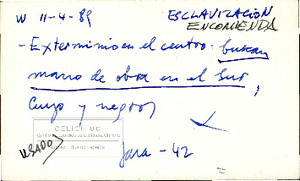 W 11-4-89 ESCLAVIZACIÓN
ENCOMIENDA
- Exterminio en el centro. buscan
mano de obra en el sur,
Cuyo y negros
CELICH UC
USADO
Jara - 42